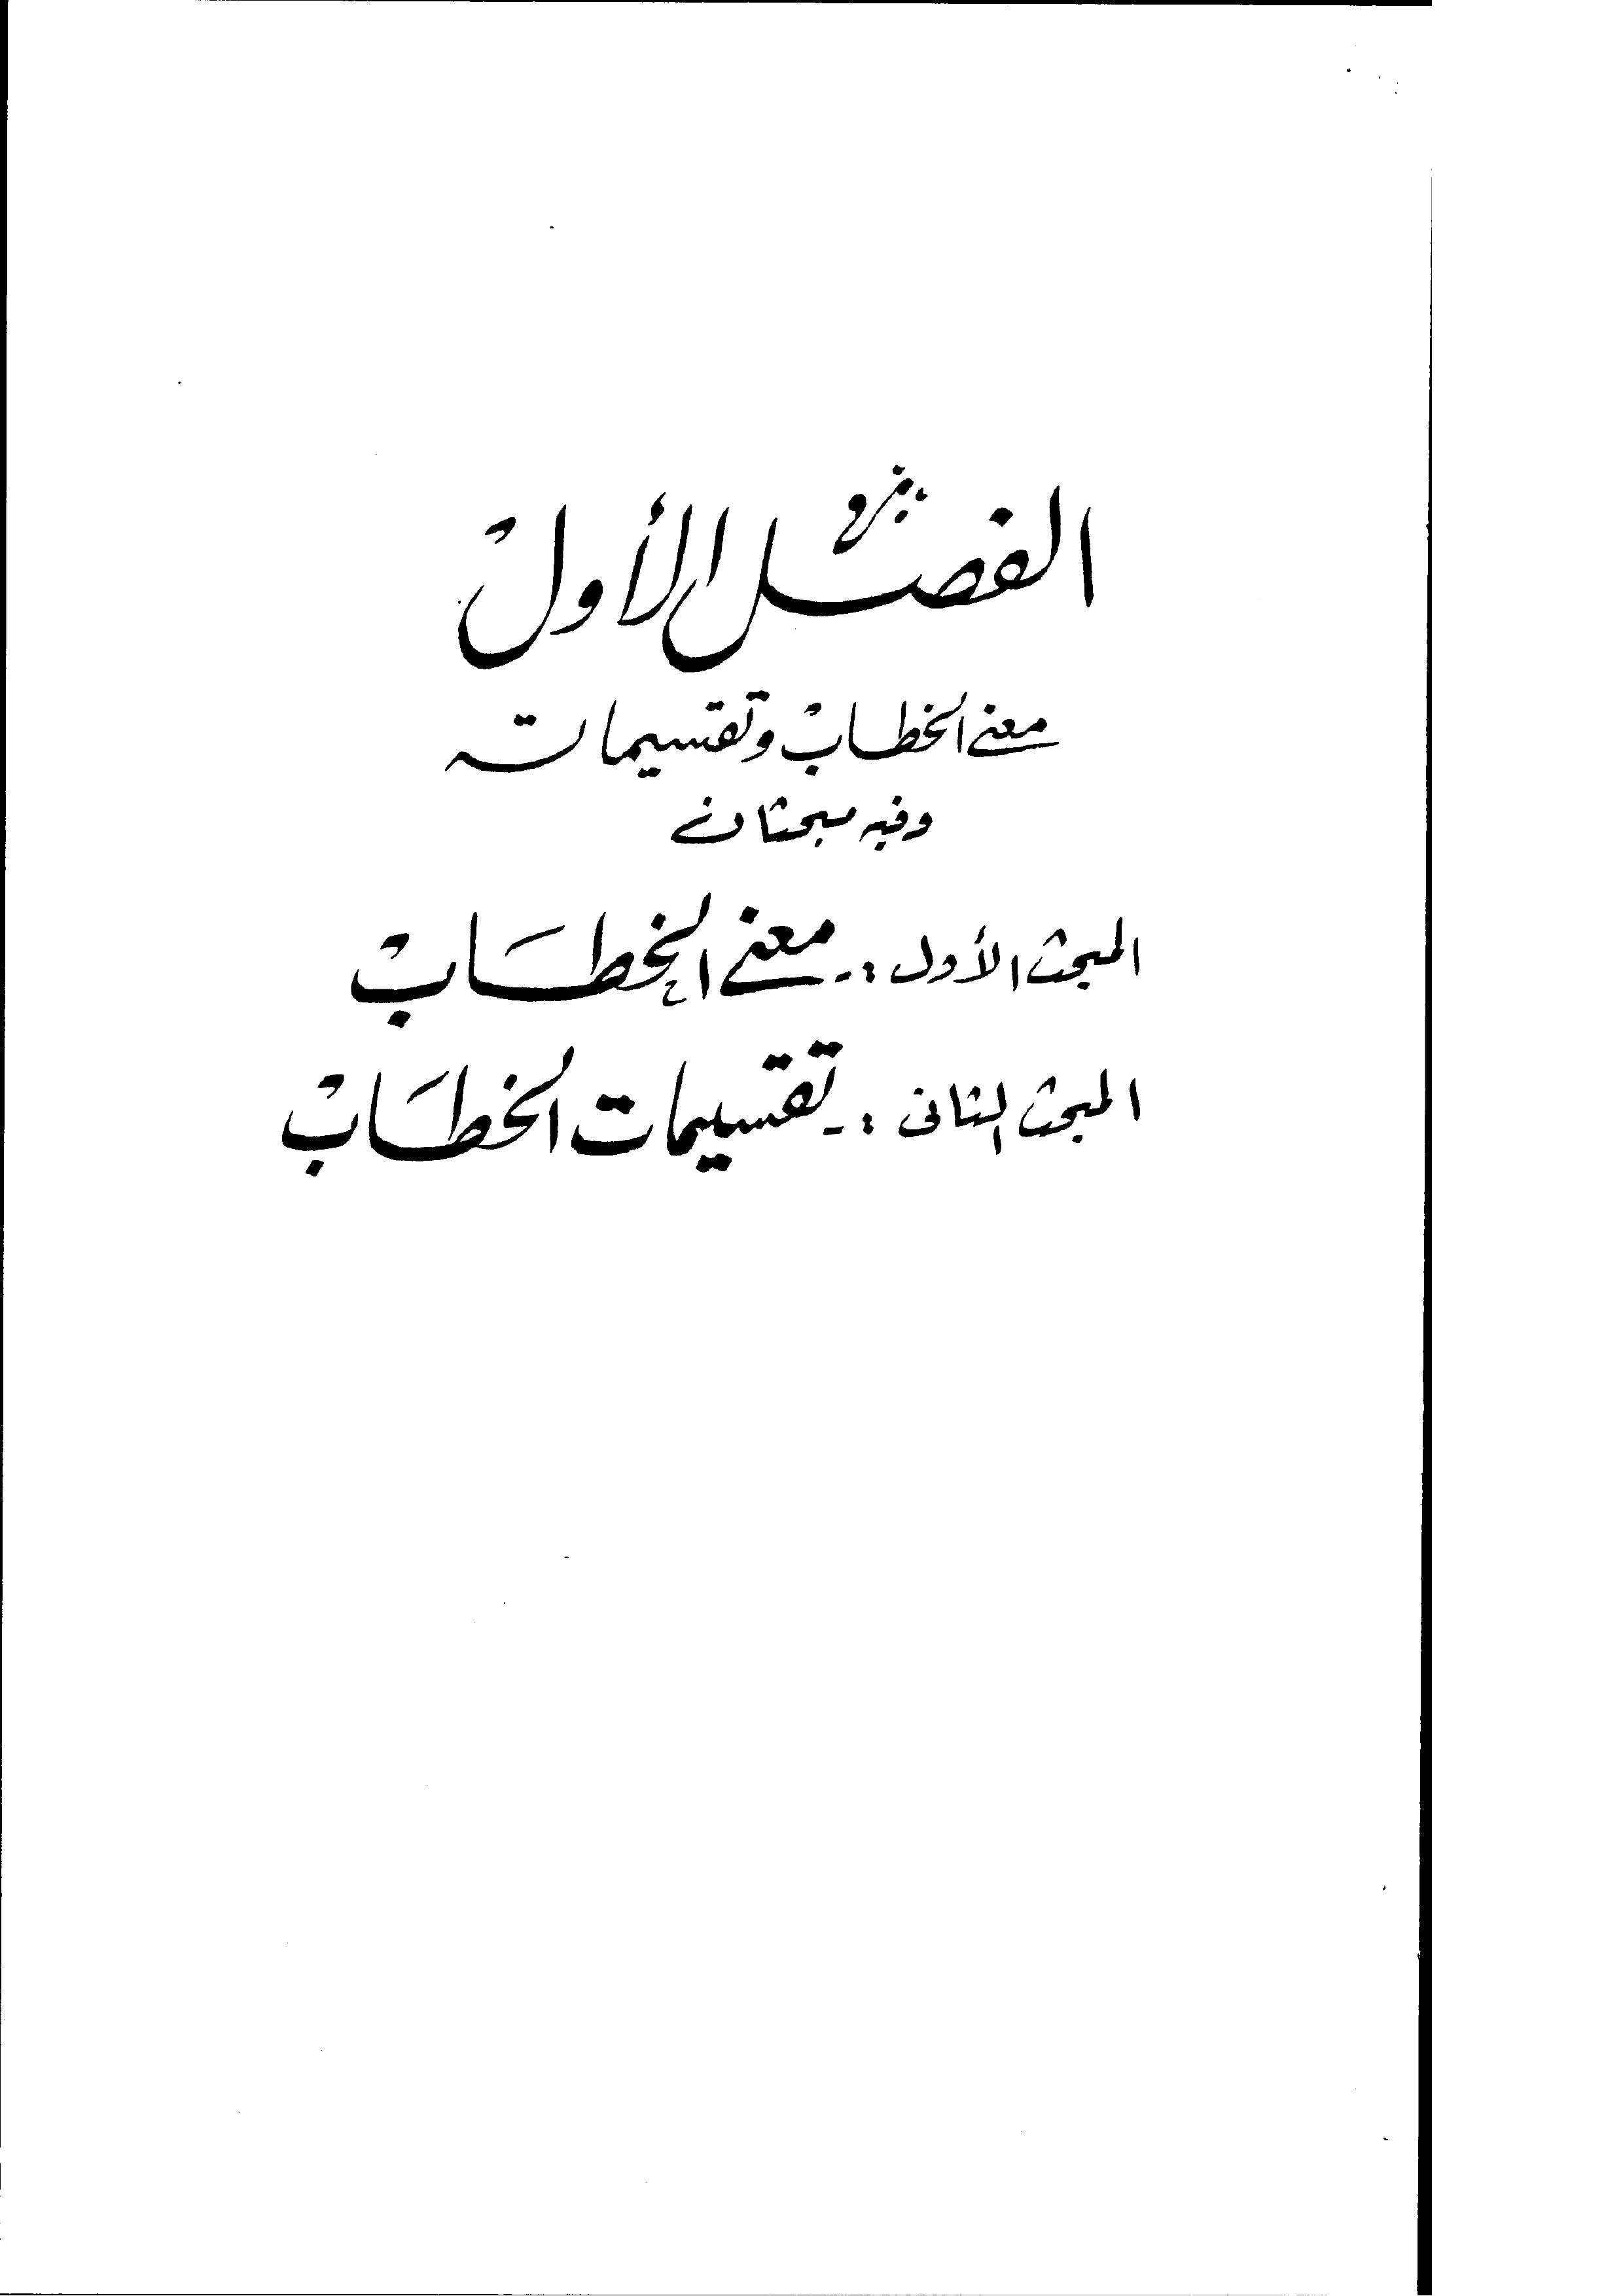 الفصل الأول
معنى الخطاب وتقسيماته
وفيه مبحثان
المبحث الأول :- معنى الخطاب
المبحث الثاني :- تقسيمات الخطاب